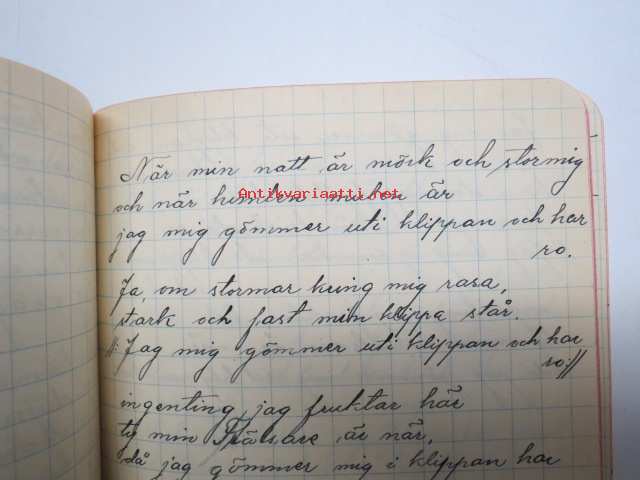 När min natt är mörk och stormig
Antikvariaatti.net
och när himlen mulen är
jag mig gömmer uti klippan och har
ro.
Ja, om stormar kring mig rasa,
stark och fast min klippa står.
//: Jag mig gömmer uti klippan och har
ro://
ingenting jag fruktar här
ty min Frälsare är när,
då jag gömmer mig i klippan har